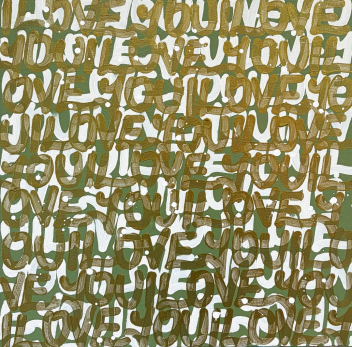 LOVE YOU I LOVE
YOU I LOVE YOU I L
OVE YOU I LOVE YO
U I LOVE YOU I LOVE
YOU I LOVE YOU I L
OVE YOU I LOVE Y
OU I LOVE YOU I LO
VE YOU I LOVE YOU
I LOVE YOU I LOVE